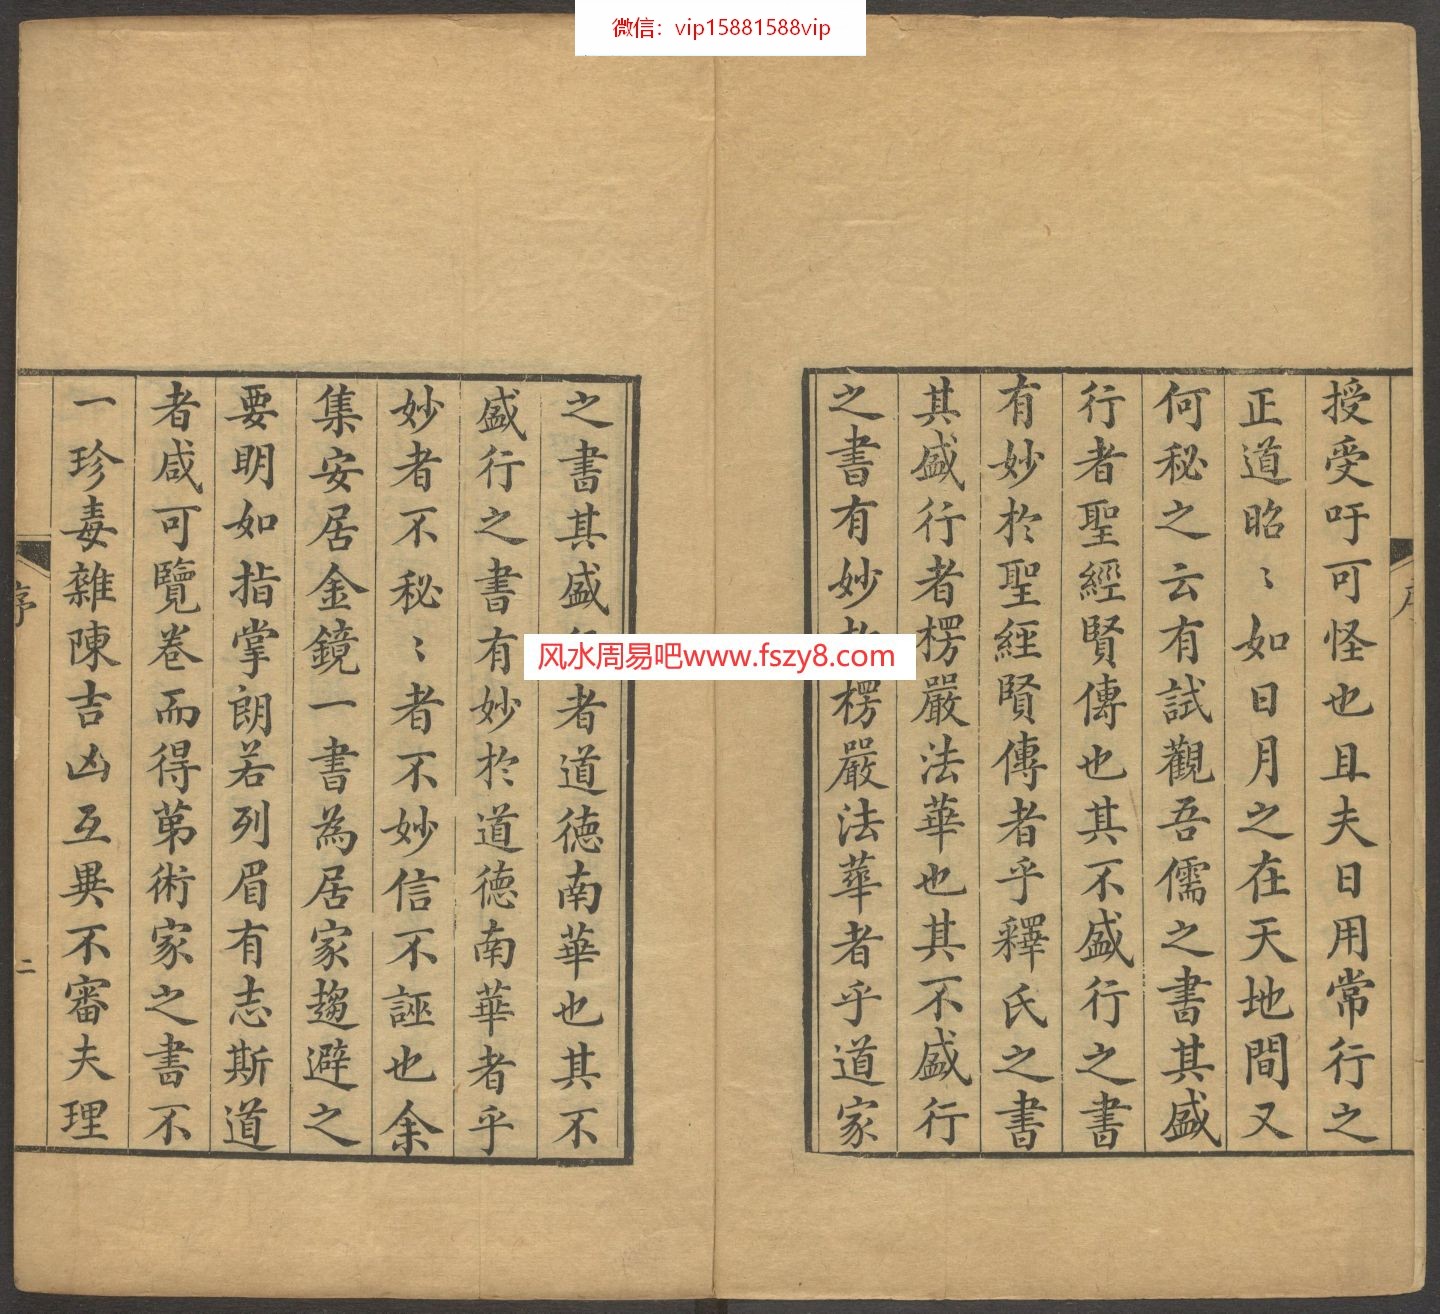 微信：vip15881588vip
授受吁可怪也且夫日用常行之
正道昭〻如日月之在天地間又
何秘之云有試觀吾儒之書其盛
行者聖經賢傳也其不盛行之書
有妙於聖經賢傳者乎釋氏之書
其盛行者楞嚴法華也其不盛行
之書有妙楞嚴法華者乎道家
之書其盛者道德南華也其不
盛行之書有妙於道德南華者乎
妙者不秘〻者不妙信不誣也余
集安居金鏡一書為居家趨避之
要明如指掌朗若列眉有志斯道
者咸可覽卷而得第術家之書不
一珍毒雜陳吉凶互異不審夫理
序
二
风水周易吧www.fszy8.com